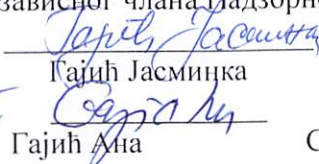 зависног члана Надзорно
Гајић Јасминка
Гајић Јасминка
Гајић Ана